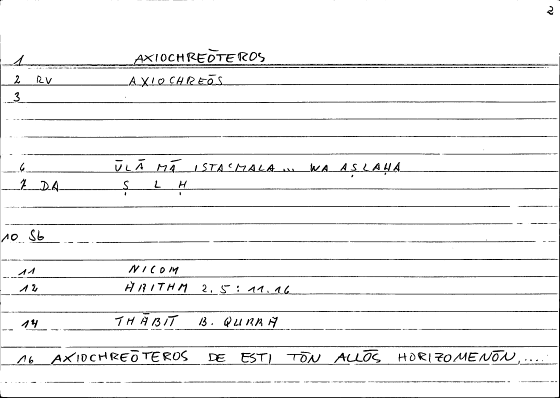 2
1 AXIOCHREŌTEROS
2 RV AXIOCHREŌS
3
6 ŪLĀ MĀ ISTAʿMALA... WA AṢLAḤA
7 DA Ṣ L Ḥ
10 Sb
11 NICOM
12 ARITHM 2.5:11.16
14 THĀBIT B. QURRA
16 AXIOCHREŌTEROS DE ESTI TŌN ALLŌS HORIZOMENŌN,....